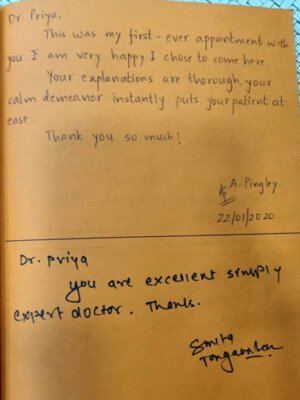 Dr Priya,
This was my first-ever appointment with
you. I am very happy I chose to come here.
Your explanations are thorough, your
calm demeanor instantly puts your patient at
ease.
Thank you so much!
A. Pingley.
22/01/2020.
Dr. Priya
you are excellent simply
expert doctor. Thanks.
Smita